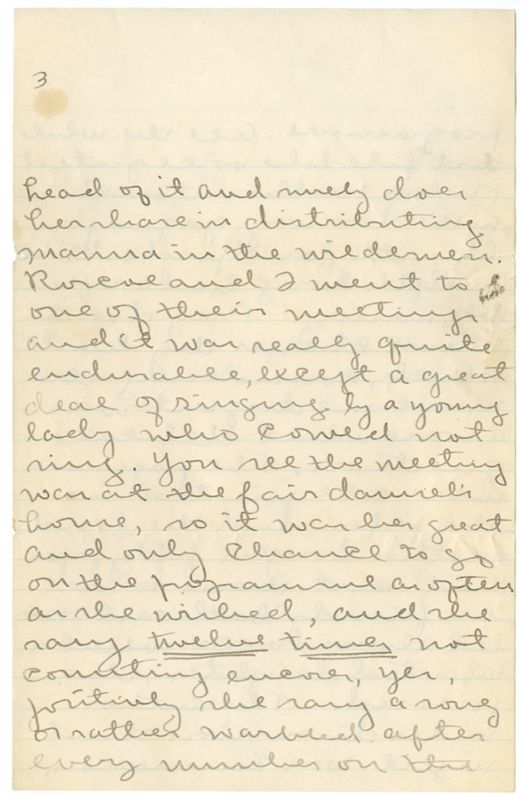 3
head of it and surely does
her share in distributing
manna in the wilderness.
Roscoe and I went to
one of their meetings
and it was really quite
endurable, except a great
deal of singing by a young
lady who cowed not
sing. You see the meeting
was at the fair damsel's
home, so it was her great
and only chance to go
on the programme as often
as she wished, and she
sang twelve times not
counting encores, yes,
positively she sang a song
or rather warbled after
every number on the